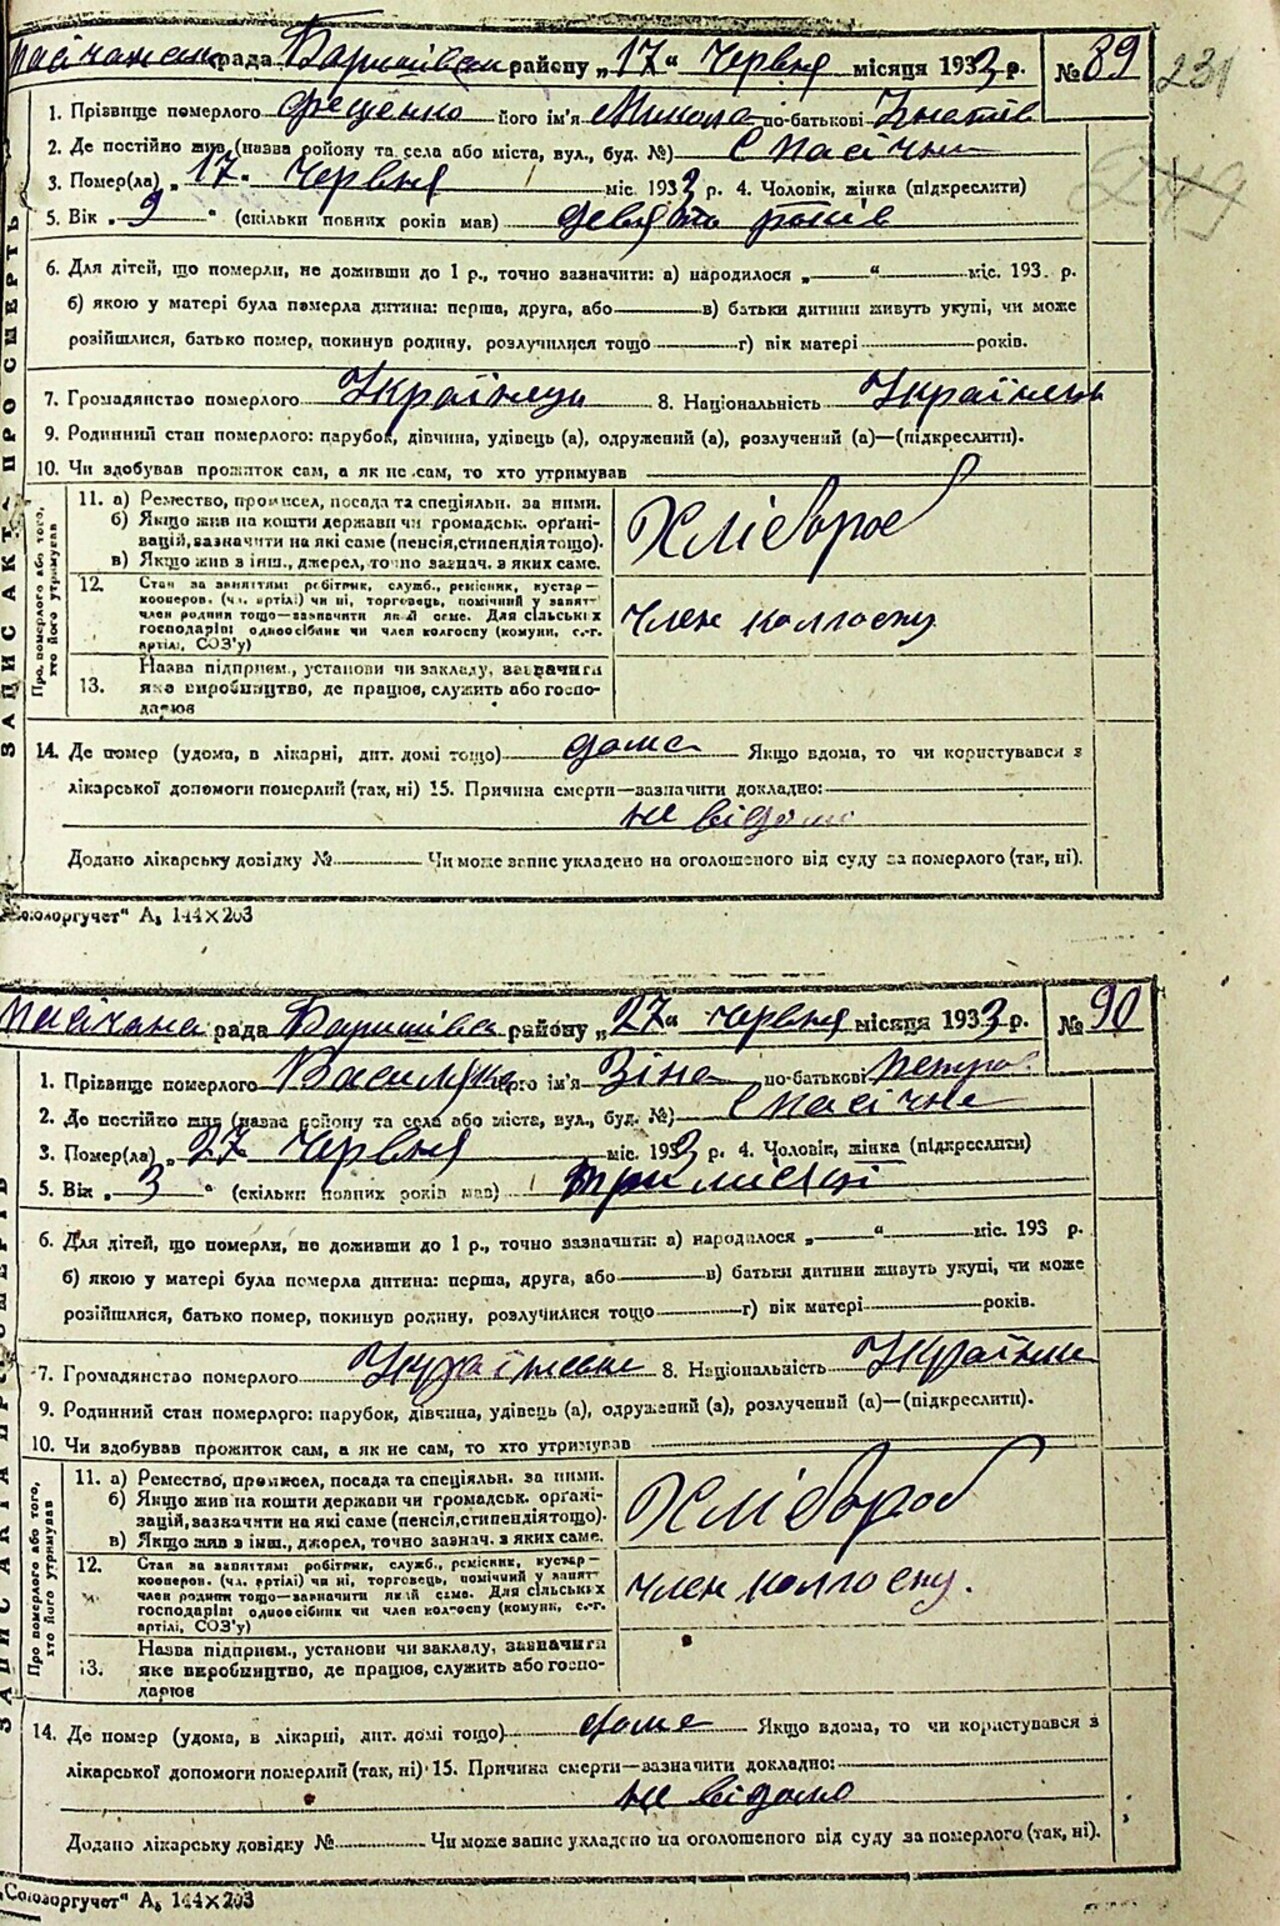 рада Баришівськ району „17“ Червня місяця 1933 р. № 89
231
1. Прізвище померлого його ім'я Микола по-батькові Гнатів
2. Де постійно жив (назва району та села або міста, вул., буд. №) С Пасічна
249
3. Помер(ла) „17“ Червня міс. 1933 р. 4. Чоловік, жінка (підкреслити)
5. Вік „9“ (скільки повних років мав) девять років
6. Для дітей, що померли, не доживши до 1 р., точно зазначити: а) народилося „ “ міс. 193 р.
б) якою у матері була померла дитина: перша, друга, або в) батьки дитини живуть укупі, чи може
розійшлися, батько помер, покинув родину, розлучилися тощо г) вік матері років.
7. Громадянство померлого Українець 8. Національність Українець
9. Родинний стан померлого: парубок, дівчина, удівець (а), одружений (а), розлучений (а)—(підкреслити).
10. Чи здобував прожиток сам, а як не сам, то хто утримував
ЗАПИС АКТА ПРО СМЕРТЬ
Про померлого або того, хто його утримував
11. а) Ремество, промисел, посада та спеціяльн. за ними. Хлібороб
б) Якщо жив на кошти держави чи громадськ. органі-
зацій, зазначити на які саме (пенсія, стипендія тощо).
в) Якщо жив з інш., джерел, точно зазнач. з яких саме.
12. Стан за заняттям: робітник, служб., ремісник, кустар—
кооперов. (чл. артілі) чи ні, торговець, помічний у занят-
член родини тощо—зазначити який саме. Для сільських член колгоспу
господарів: одноосібник чи член колгоспу (комуни, с.-г.
артілі, СОЗ'у)
13. Назва підприєм., установи чи закладу, зазначити
яке виробництво, де працює, служить або госпо-
дарює
14. Де помер (удома, в лікарні, дит. домі тощо) дома Якщо вдома, то чи користувався з
лікарської допомоги померлий (так, ні) 15. Причина смерти—зазначити докладно:
не відомо
Додано лікарську довідку № Чи може запис укладено на оголошеного від суду за померлого (так, ні).
„Союзоргучет“ А₅ 144×203
рада Баришівськ району „27“ червня місяця 1933 р. № 90
1. Прізвище померлого його ім'я Зіна по-батькові Петров.
2. Де постійно жив (назва району та села або міста, вул., буд. №) С Пасічна
3. Помер(ла) „27“ Червня міс. 1933 р. 4. Чоловік, жінка (підкреслити)
5. Вік „3“ (скільки повних років мав) три місяці
6. Для дітей, що померли, не доживши до 1 р., точно зазначити: а) народилося „ “ міс. 193 р.
б) якою у матері була померла дитина: перша, друга, або в) батьки дитини живуть укупі, чи може
розійшлися, батько помер, покинув родину, розлучилися тощо г) вік матері років.
7. Громадянство померлого 8. Національність
9. Родинний стан померлого: парубок, дівчина, удівець (а), одружений (а), розлучений (а)—(підкреслити).
10. Чи здобував прожиток сам, а як не сам, то хто утримував
ЗАПИС АКТА ПРО СМЕРТЬ
Про померлого або того, хто його утримував
11. а) Ремество, промисел, посада та спеціяльн. за ними. Хлібороб
б) Якщо жив на кошти держави чи громадськ. органі-
зацій, зазначити на які саме (пенсія, стипендія тощо).
в) Якщо жив з інш., джерел, точно зазнач. з яких саме.
12. Стан за заняттям: робітник, служб., ремісник, кустар—
кооперов. (чл. артілі) чи ні, торговець, помічний у занят-
член родини тощо—зазначити який саме. Для сільських член колгоспу.
господарів: одноосібник чи член колгоспу (комуни, с.-г.
артілі, СОЗ'у)
13. Назва підприєм., установи чи закладу, зазначити
яке виробництво, де працює, служить або госпо-
дарює
14. Де помер (удома, в лікарні, дит. домі тощо) дома Якщо вдома, то чи користувався з
лікарської допомоги померлий (так, ні) 15. Причина смерти—зазначити докладно:
не відомо
Додано лікарську довідку № Чи може запис укладено на оголошеного від суду за померлого (так, ні).
„Союзоргучет“ А₅ 144×203